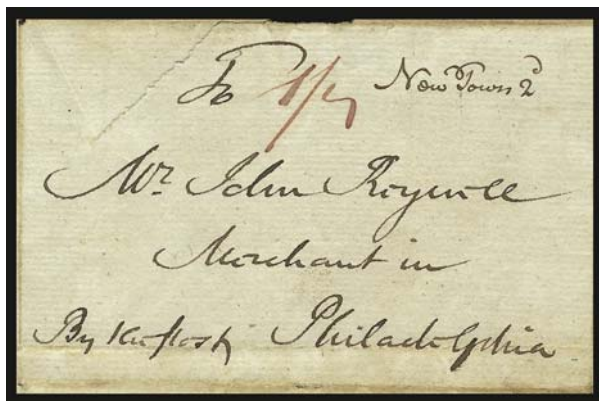 To 1/4 New Town 2d
Mr John Reynell
Merchant in
By the Post Philadelphia